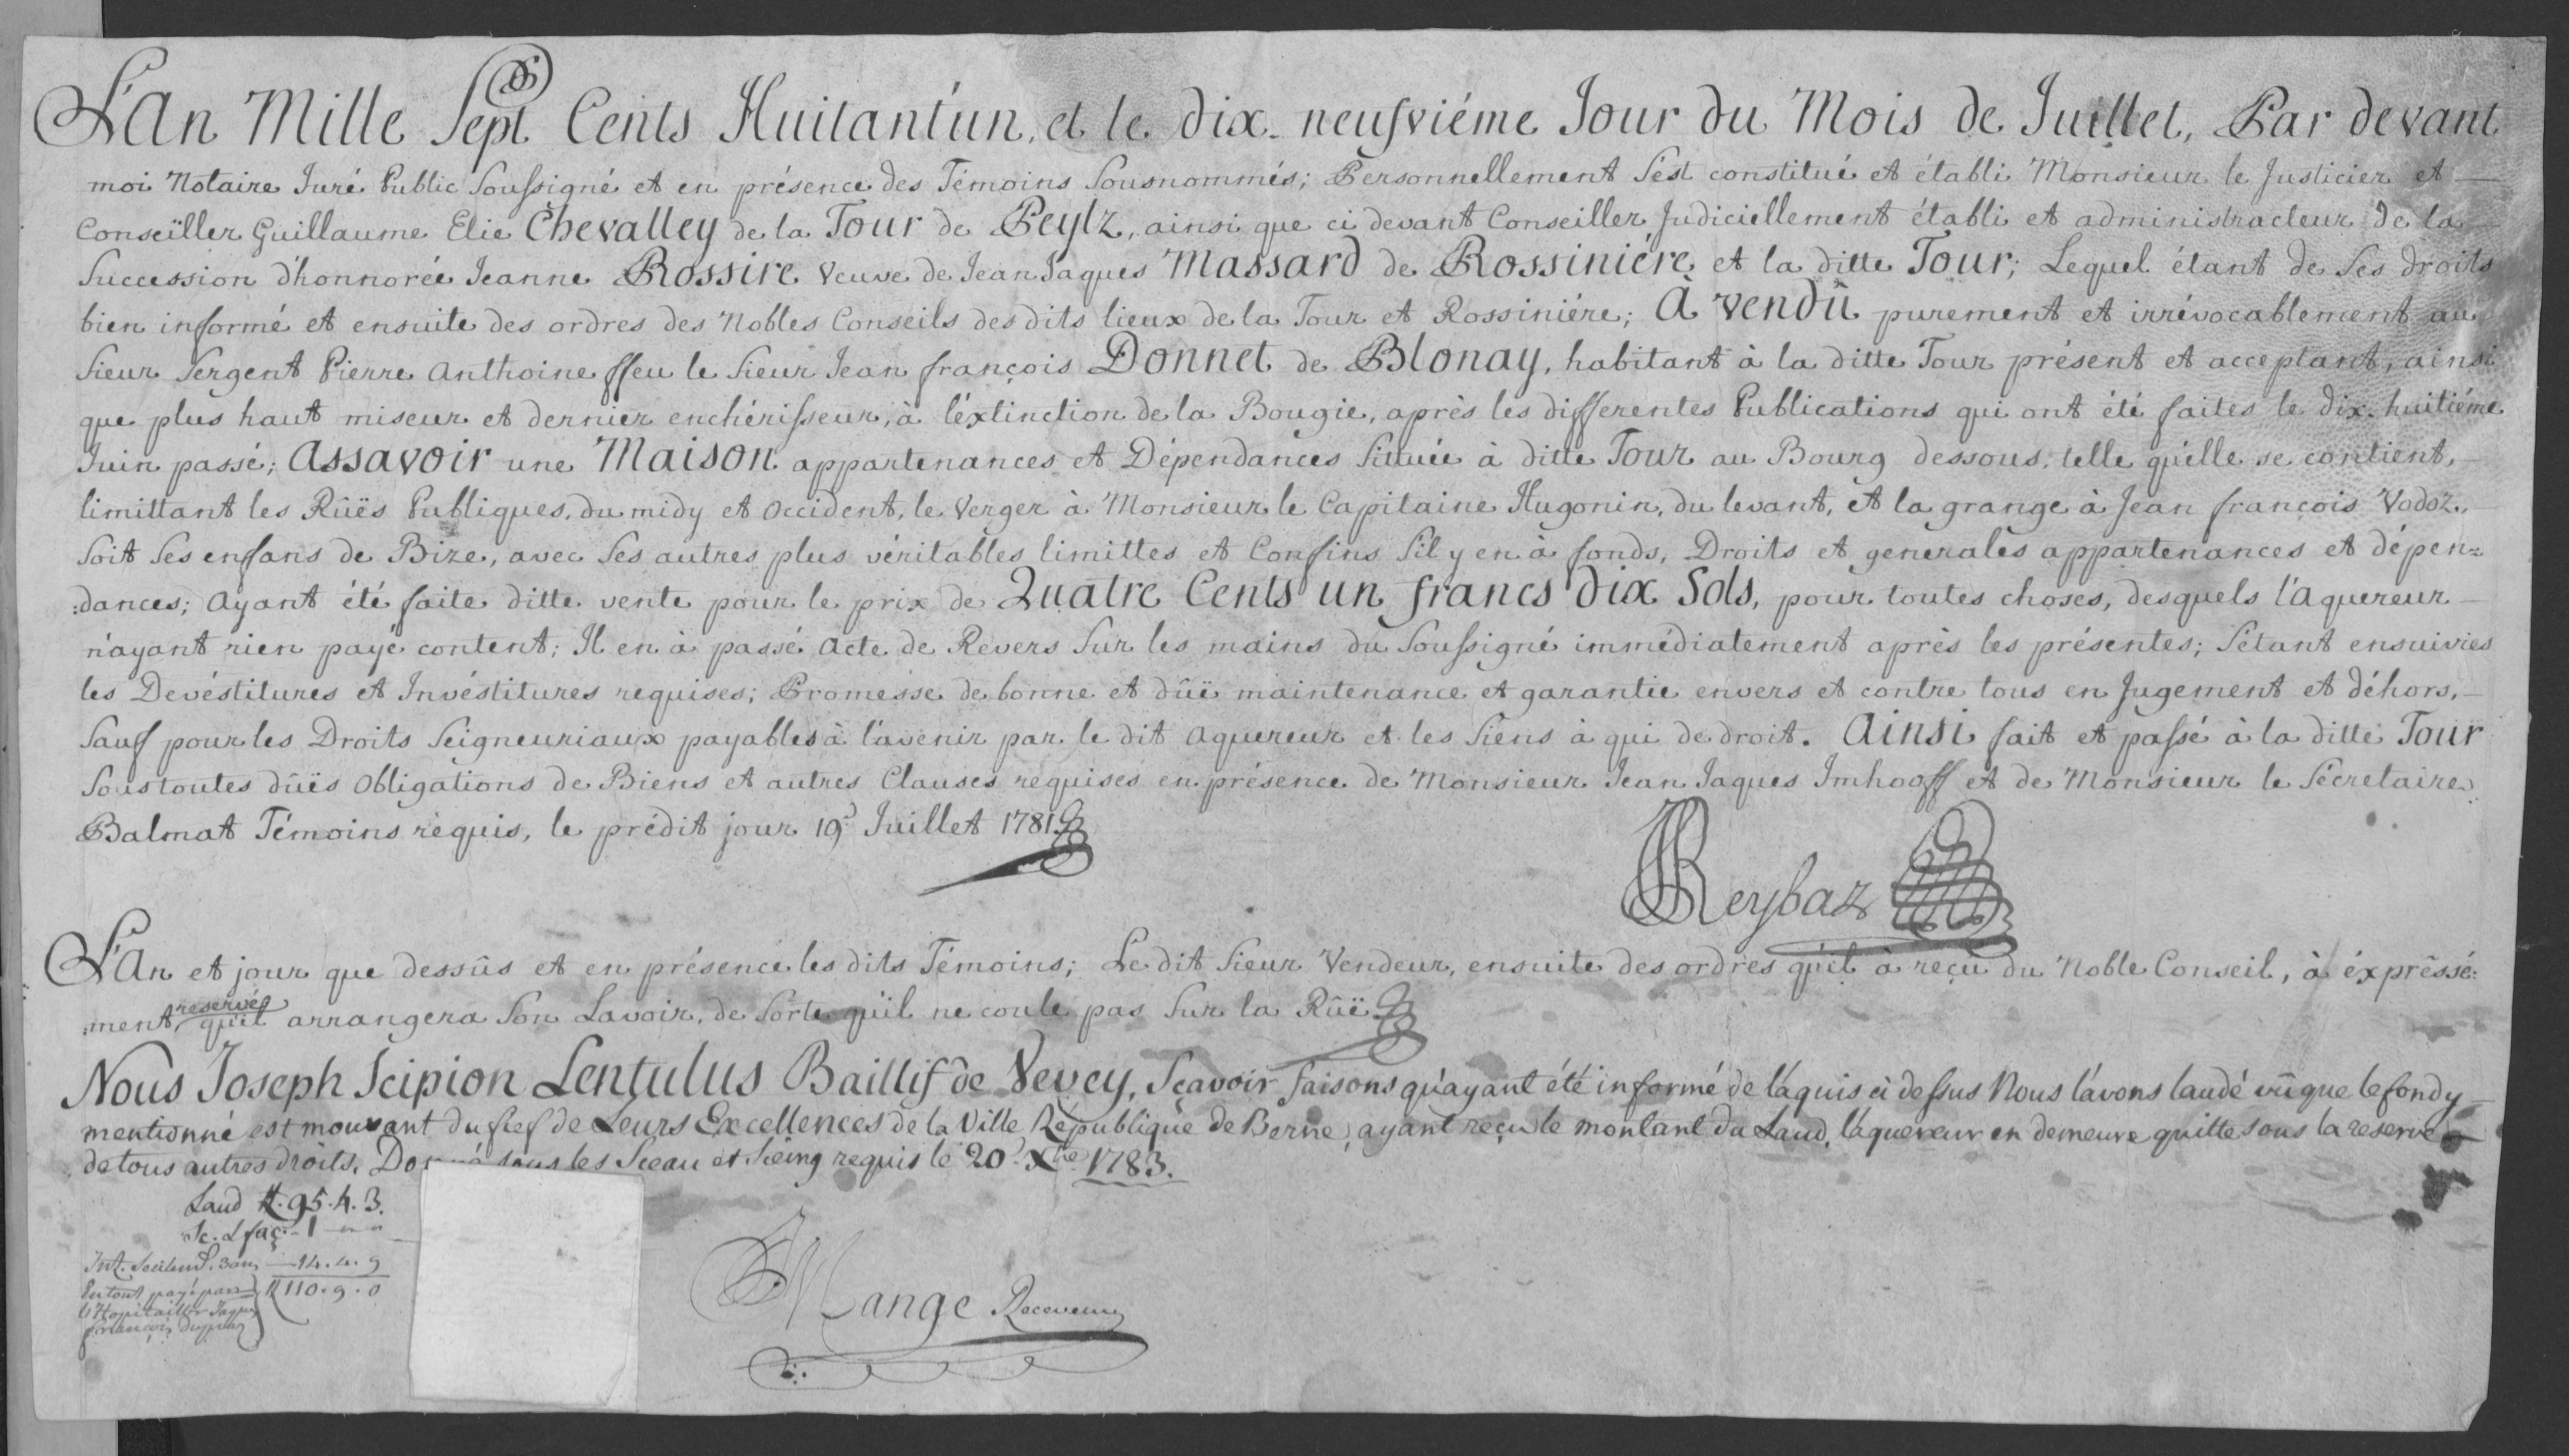 L'An Mille Sept Cents Huitant'un, et le dix-neufviéme Jour du Mois de Juillet, Par devant
moi Notaire Juré Public Soussigné et en présence des Témoins Sousnommés; Personnellement S'est constitué et établi Monsieur le Justicier et
Conseïller Guillaume Elie Chevalley de la Tour de Peylz, ainsi que ci devant Conseiller Judiciellement établi et administracteur de la
Succession d'honnorée Jeanne Rossire Veuve de Jean Jaques Massard de Rossiniére, et la ditte Tour; Lequel étant de Ses droits
bien informé et ensuite des ordres des Nobles Conseils des dits lieux de la Tour et Rossiniére; À vendû purement et irrévocablement au
Sieur Sergent Pierre Anthoine ffeu le Sieur Jean françois Donnet de Blonay, habitant à la ditte Tour présent et acceptant, ainsi
que plus haut miseur et dernier enchérisseur, à l'éxtinction de la Bougie, après les differentes Publications qui ont été faites le dix-huitiéme
Juin passé; Assavoir une Maison appartenances et Dépendances Situuée à ditte Tour au Bourg dessous, telle qu'elle se contient,
limittant les Rûës Publiques, du midy et Occident, le Verger à Monsieur le Capitaine Hugonin, du levant, et la grange à Jean françois Vodoz,
Soit Ses enfans de Bize, avec Ses autres plus véritables limittes et Confins S'il y en à fonds, Droits et generales appartenances et dépen=
:dances; Ayant été faite ditte vente pour le prix de Quatre Cents un francs dix Sols, pour toutes choses, desquels l'Aquereur
n'ayant rien payé content; Il en à passé Acte de Revers Sur les mains du Soussigné immédiatement après les présentes; S'étant ensuivies
les Devéstitures et Invéstitures requises; Promesse de bonne et dûë maintenance et garantie envers et contre tous en Jugement et déhors,
Sauf pour les Droits Seigneuriaux payables à l'avenir par le dit Aquereur et les Siens à qui de droit. Ainsi fait et passé à la ditte Tour
Sous toutes dûës Obligations de Biens et autres Clauses requises en présence de Monsieur Jean Jaques Imhooff et de Monsieur le Sécretaire
Balmat Témoins réquis, le prédit jour 19e Juillet 1781.
Reybaz
L'An et jour que dessûs et en présence les dits Témoins; Le dit Sieur Vendeur, ensuite des ordres qu'il à reçu du Noble Conseil, à éxpréssé:
:ment, reservée qu'il arrangera Son Lavoir, de Sorte qu'il ne coule pas Sur la Rûë
Nous Joseph Scipion Lentulus Baillif de Vevey, Sçavoir faisons qu'ayant été informé de l'aquis ci dessus Nous l'avons laudé vû que le fondy
mentionné est mouvant du fief de Leurs Excellences de la Ville République de Berne, ayant reçu le montant du Laud, l'aquereur en demeure quitte sous la reserve
de tous autres droits, Donné sous les Sceau et Seing requis le 20e Xbre 1783.
Laud ₶. 95. 4. 3.
Sc. & faç. - 1
Int. 3 ans 14. 4. 9
En tout payé par ₶ 110. 9. 0
l'Hopitallier Jaques
François
Mange Receveur